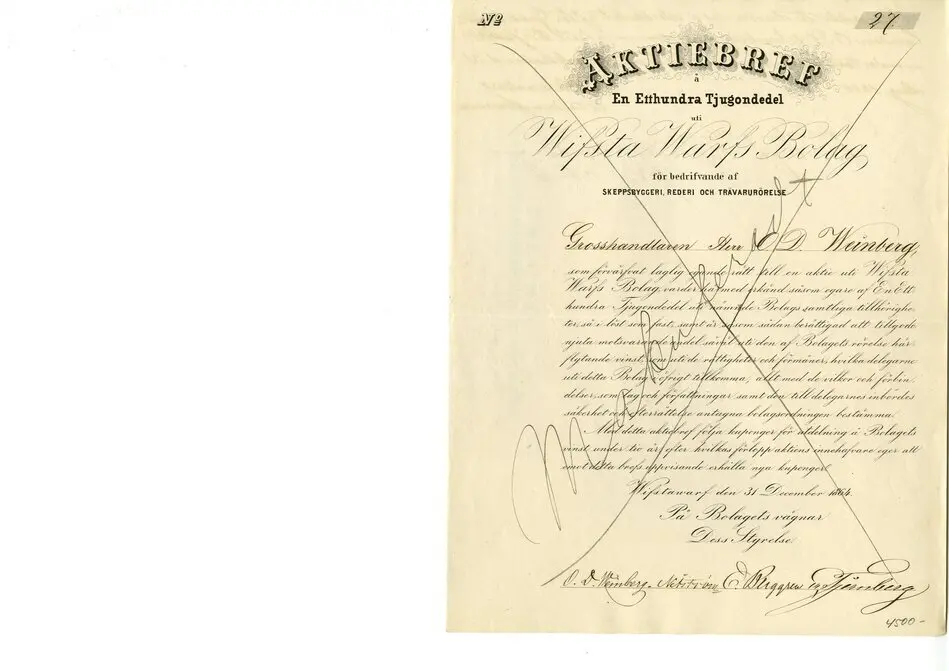 Nº 27
AKTIEBREF
å
En Etthundra Tjugondedel
uti
Wifsta Warfs Bolag
för bedrifvande af
SKEPPSBYGGERI, REDERI OCH TRÄVARURÖRELSE
Grosshandlaren Herr O. D. Weinberg,
som förvärfvat laglig egande rätt till en aktie uti Wifsta
Warfs Bolag, varder härmed erkänd såsom egare af En Ett
hundra Tjugondedel uti nämnde Bolags samtliga tillhörighe-
ter, så i löst som fast, samt är såsom sådan berättigad att tillgodo
njuta motsvarande andel såväl uti den af Bolagets rörelse här
flytande vinst, som uti de rättigheter och förmåner, hvilka delegarne
uti detta Bolag i öfrigt tillkomma, allt med de vilkor och förbin
delser, som lag och författningar samt den till delegarnes inbördes
säkerhet och efterrättelse antagna bolagsordningen bestämma.
Med detta aktiebref följa kuponger för utdelning å Bolagets
vinst under tio år, efter hvilkas förlopp aktiens innehafvare eger att
emot detta brefs uppvisande erhålla nya kuponger.
Wifstawarf den 31 December 1864.
På Bolagets vägnar
Dess Styrelse.
O. D. Weinberg. C. Berggren
4500-
Makulerad